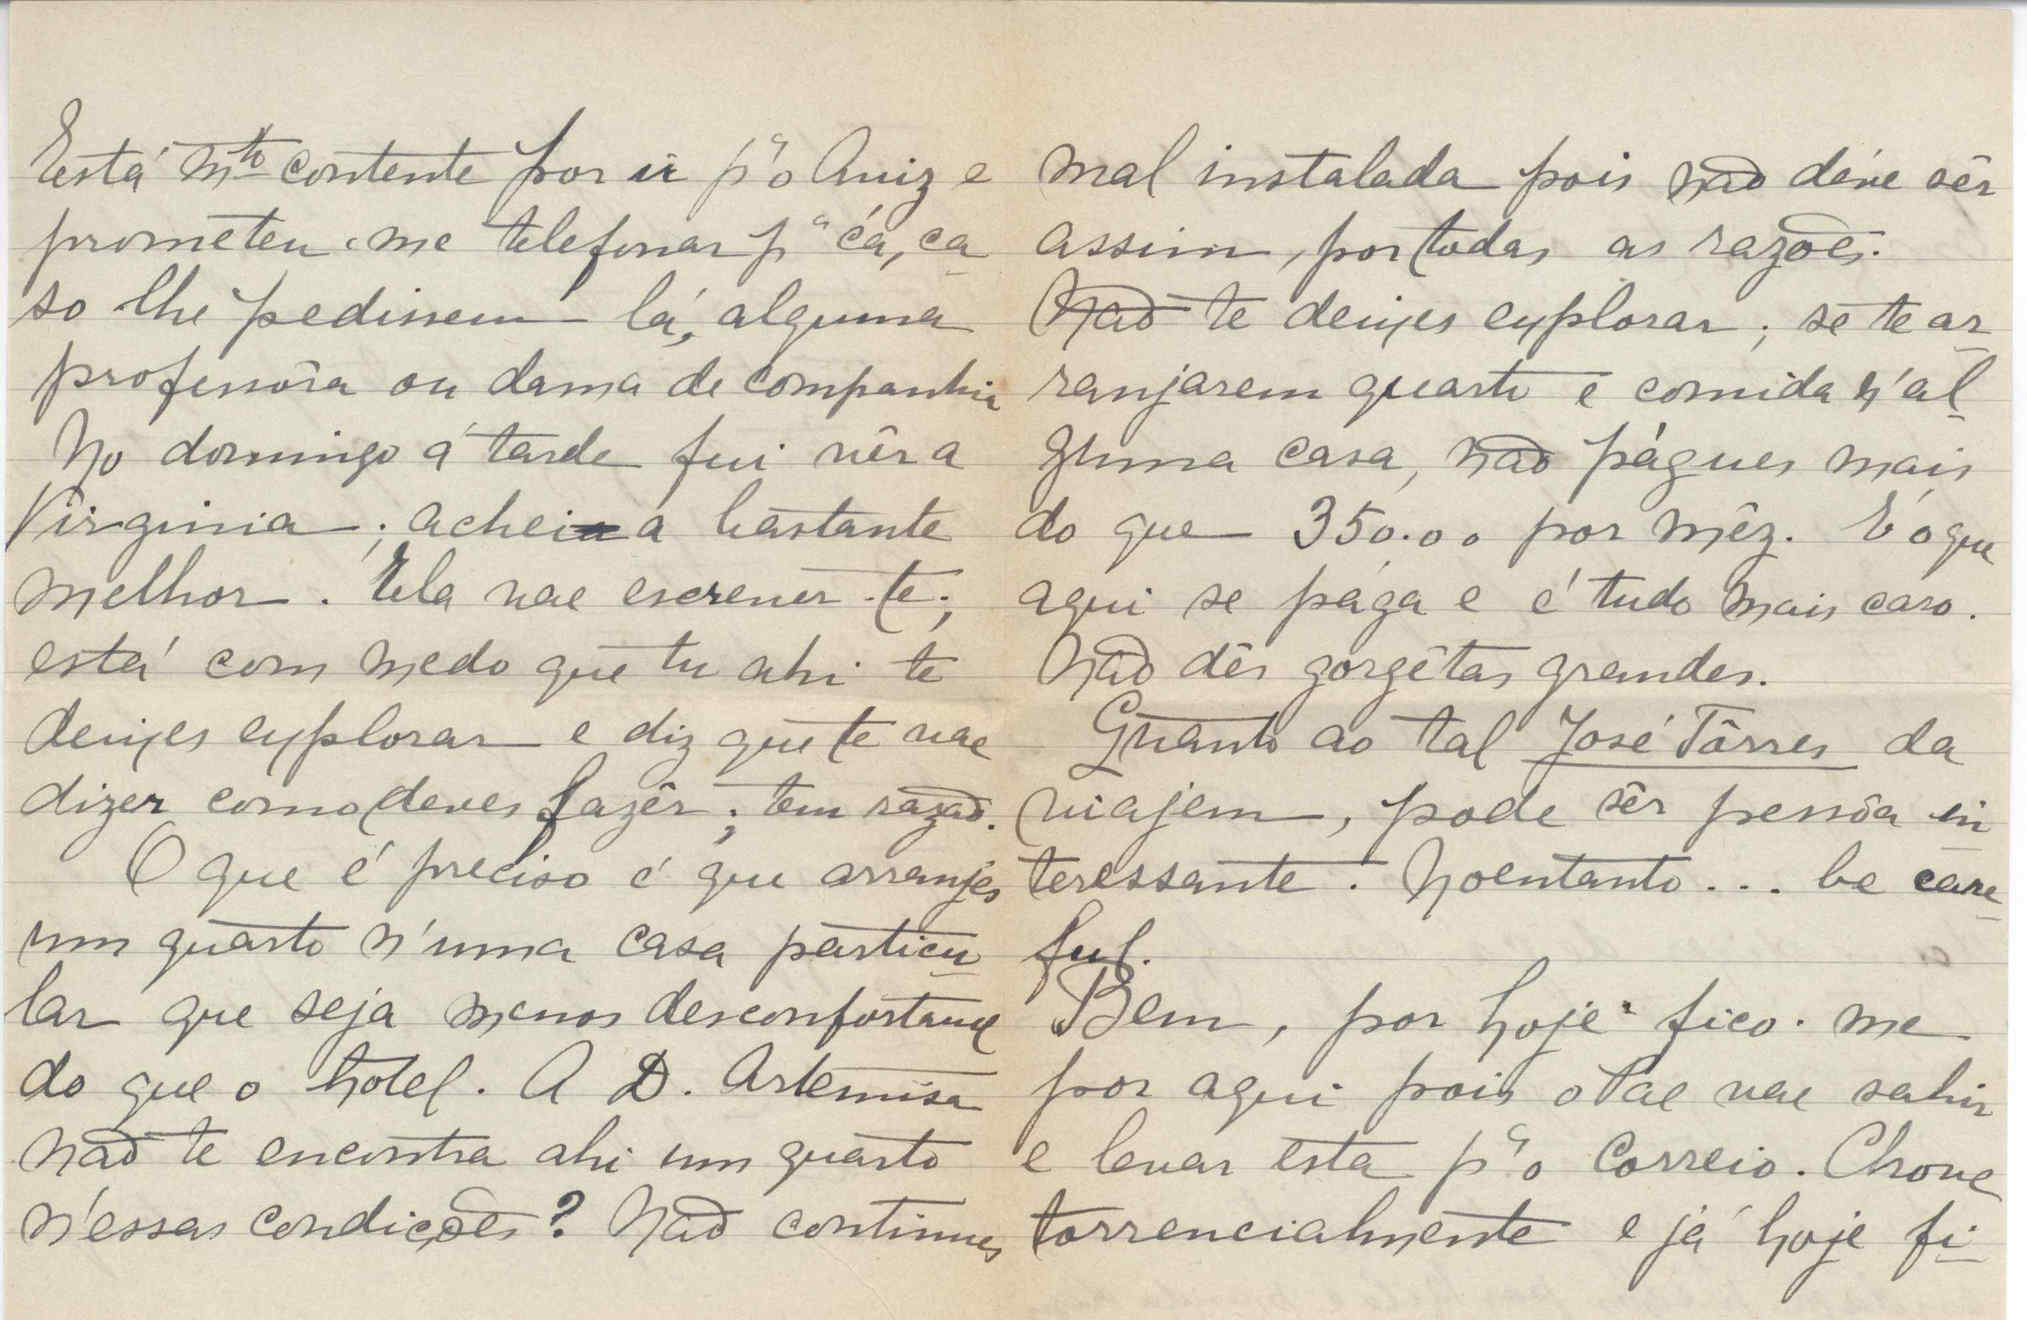 Está mto contente por ir pª o Aviz e
prometeu-me telefonar pª cá, ca
so lhe pedissem lá, alguma
professôra ou dama de companhia
No domingo á tarde fui vêr a
Virginia; achei a bastante
melhor. Ela vae escrever-te;
está com medo que tu ahi te
deixes explorar e diz que te vae
dizer como deves fazêr; tem razão.
O que é preciso é que arranjes
um quarto n'uma casa particu
lar que seja menos desconfortavel
do que o hotel. A D. Artemisa
não te encontra ahi um quarto
n'essas condições? Não continues
mal instalada pois não déve sêr
assim, por todas as razões.
Não te deixes explorar; se te ar
ranjarem quarto e comida n'al
guma casa, não págues mais
do que 350.00 por mêz. É o que
aqui se pága e é tudo mais caro.
Não dês gorgêtas grandes.
Quanto ao tal José Tôrres da
viajem, pode sêr pessôa in
teressante. Noentanto... be care
ful.
Bem, por hoje fico-me
por aqui pois o Pae vae sahir
e levar esta pª o Correio. Chove
torrencialmente e já hoje fi